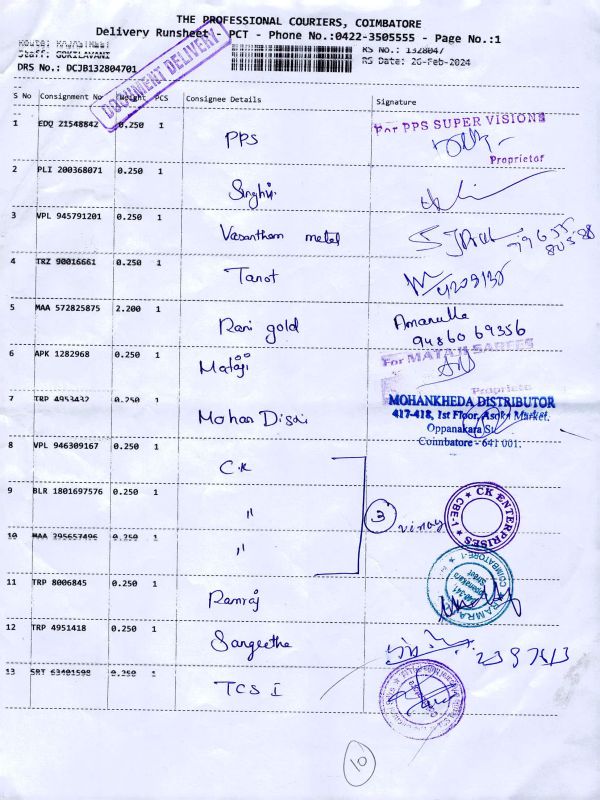 THE PROFESSIONAL COURIERS, COIMBATORE
Delivery Runsheet - PCT - Phone No.:0422-3505555 - Page No.:1
Staff: GOKILAVANI
RS No.: 1328047
DRS No.: DCJB132804701
RS Date: 26-Feb-2024
DOCUMENT DELIVERY
S No Consignment No Weight PCS Consignee Details Signature
1 EDQ 21548842 0.250 1 PPS
For PPS SUPER VISIONS
Proprietor
2 PLI 200368071 0.250 1 Singhvi
3 VPL 945791201 0.250 1 Vasantham metal
4 TRZ 90016661 0.250 1 Tanot
5 MAA 572825875 2.200 1 Rani gold
Amanulla
94860 69356
6 APK 1282968 0.250 1 Mataji
For MATAJI SAREES
Proprieto
7 TRP 4953432 0.250 1 Mohan Disai
MOHANKHEDA DISTRIBUTOR
417-418, 1st Floor, Asoka Market.
Oppanakara St.
Coimbatore - 641 001.
8 VPL 946309167 0.250 1 C.K
9 BLR 1801697576 0.250 1 "
3 vinay
CK ENTERPRISES
CBE-1
10 MAA 395657496 0.250 1 "
11 TRP 8006845 0.250 1 Ramraj
COIMBATORE-1
12 TRP 4951418 0.250 1 Sangeetha
13 SRT 63401598 0.250 1 TCS I
10